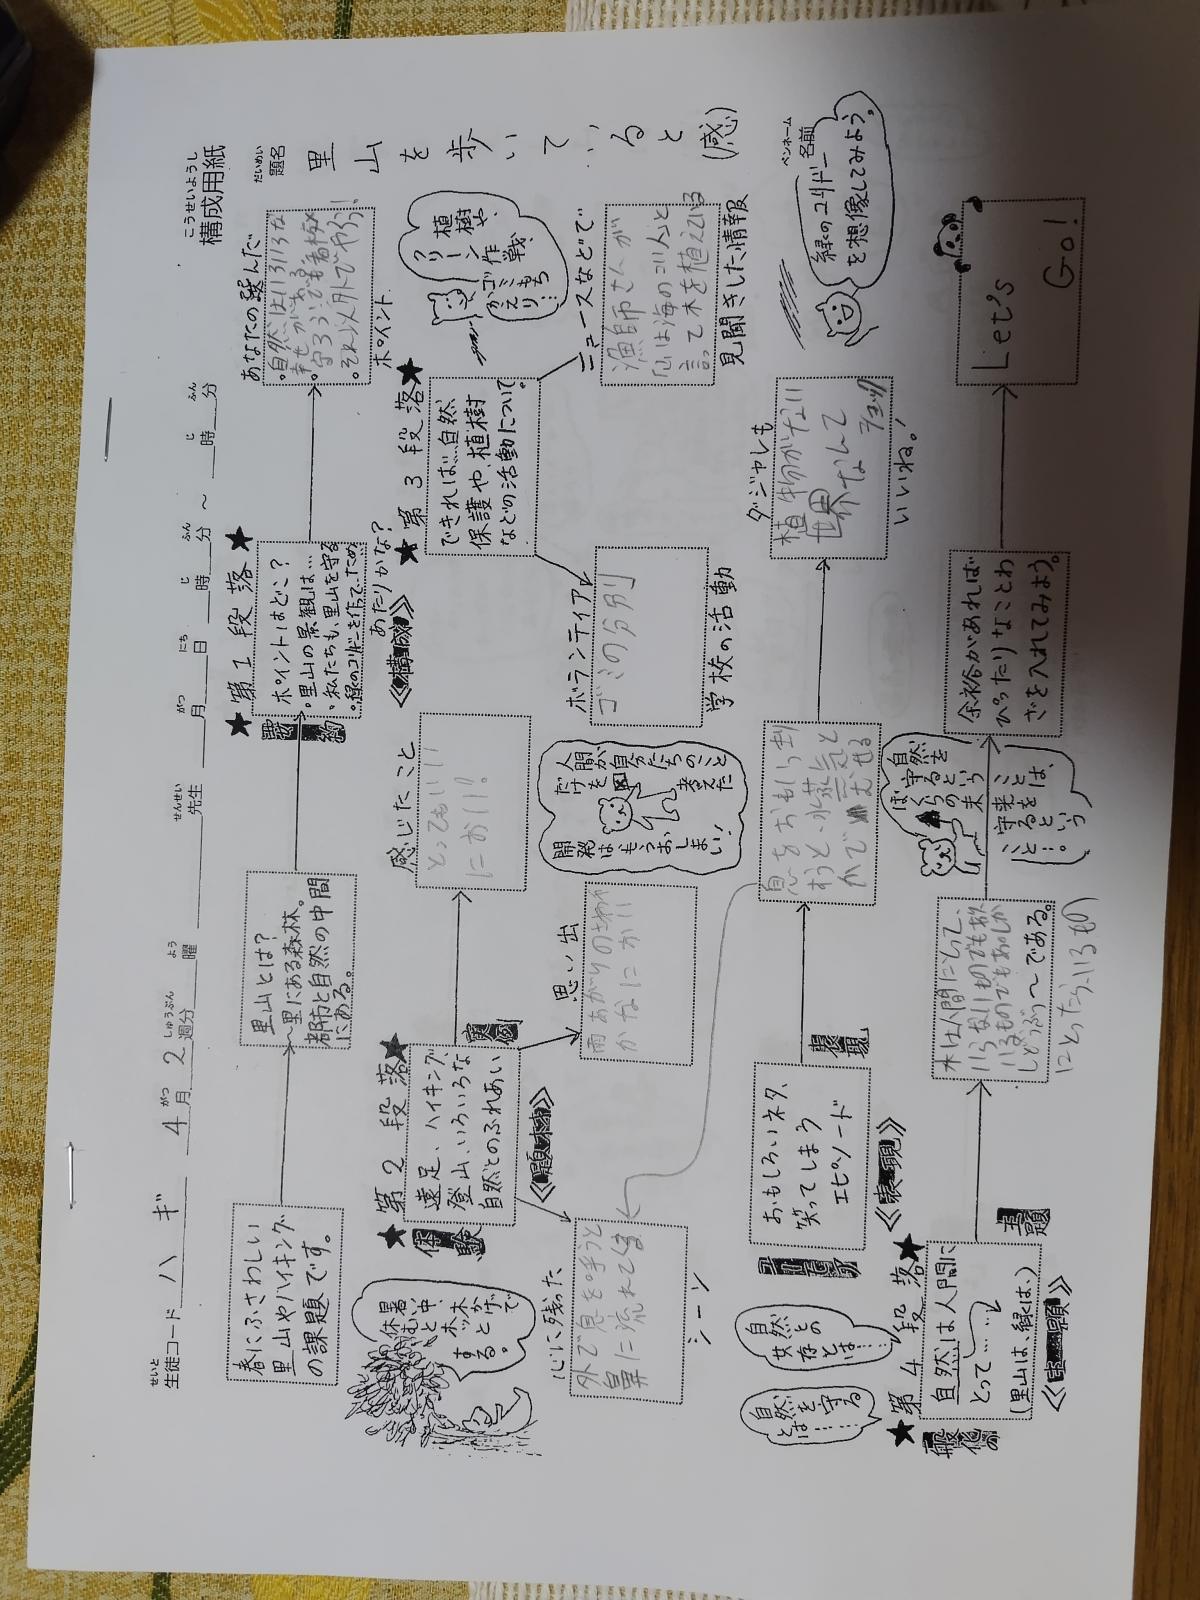 こうせいようし
構成用紙
せいと
生徒コード ハギ
がつ しゅうぶん よう せんせい がつ にち じ ふん じ ふん
4月 2週分 曜 先生 月 日 時 分 ～ 時 分
だいめい
題名 里山を歩いていると(感)
ペンネーム
名前
春にふさわしい
里山やハイキング
の課題です。
里山とは?
～里にある森林。
都市と自然の中間
にある。
★第1段落★
要約
ポイントはどこ?
。里山の景観は…
、私たちも、里山を守る
。緑のコリドーを作で、ため
あたりかな?
《構成》
あなたの読んだ
。自然はいろいろな
ポイント
★第2段落★
体験
遠足、ハイキング、
登山、いろいろな
自然とのふれあい
実例
《題材》
暑い中、
木かげで
ホッと
休む
とする。
感じたこと
とってもいい
におい!!
思い出
雨あがりのさわや
かなにか!!
心に残った
外で息を吸うと
鼻に流れてくる
シーン
★第3段落★
できれば…自然
保護や、植樹
などの活動について。
植樹や、
クリーン
作戦、
ゴミもち
かえり…
ニュースなどで
漁師さんが
「山は海の恋人」と
言って木を植えている
見聞きした情報
ボランティア
ゴミの分別
学校の活動
人間が自分たちのこと
だけを考えた
開発はもうおしまい!
おもしろいネタ、
笑ってしまう
エピソード
ユーモア
表現
《表現》
息をおもいっきり
すうと、水蒸気と
かでむせる
ダジャレも
植物がない
世界なんて
いいね!
緑のコリドー
を想像してみよう。
自然との
共存とは……
自然を守る
とは……
★第4段落★
一般化の
主題
自然は人間に
とって……
(里山は、緑は、)
《主題》
木は人間にとって、
～である。
自然を
守るという
ことは、
ぼくらの未来を
守るという
こと…。
余裕があれば
ぴったりなことわ
ざを入れてみよう。
Let's
Go!